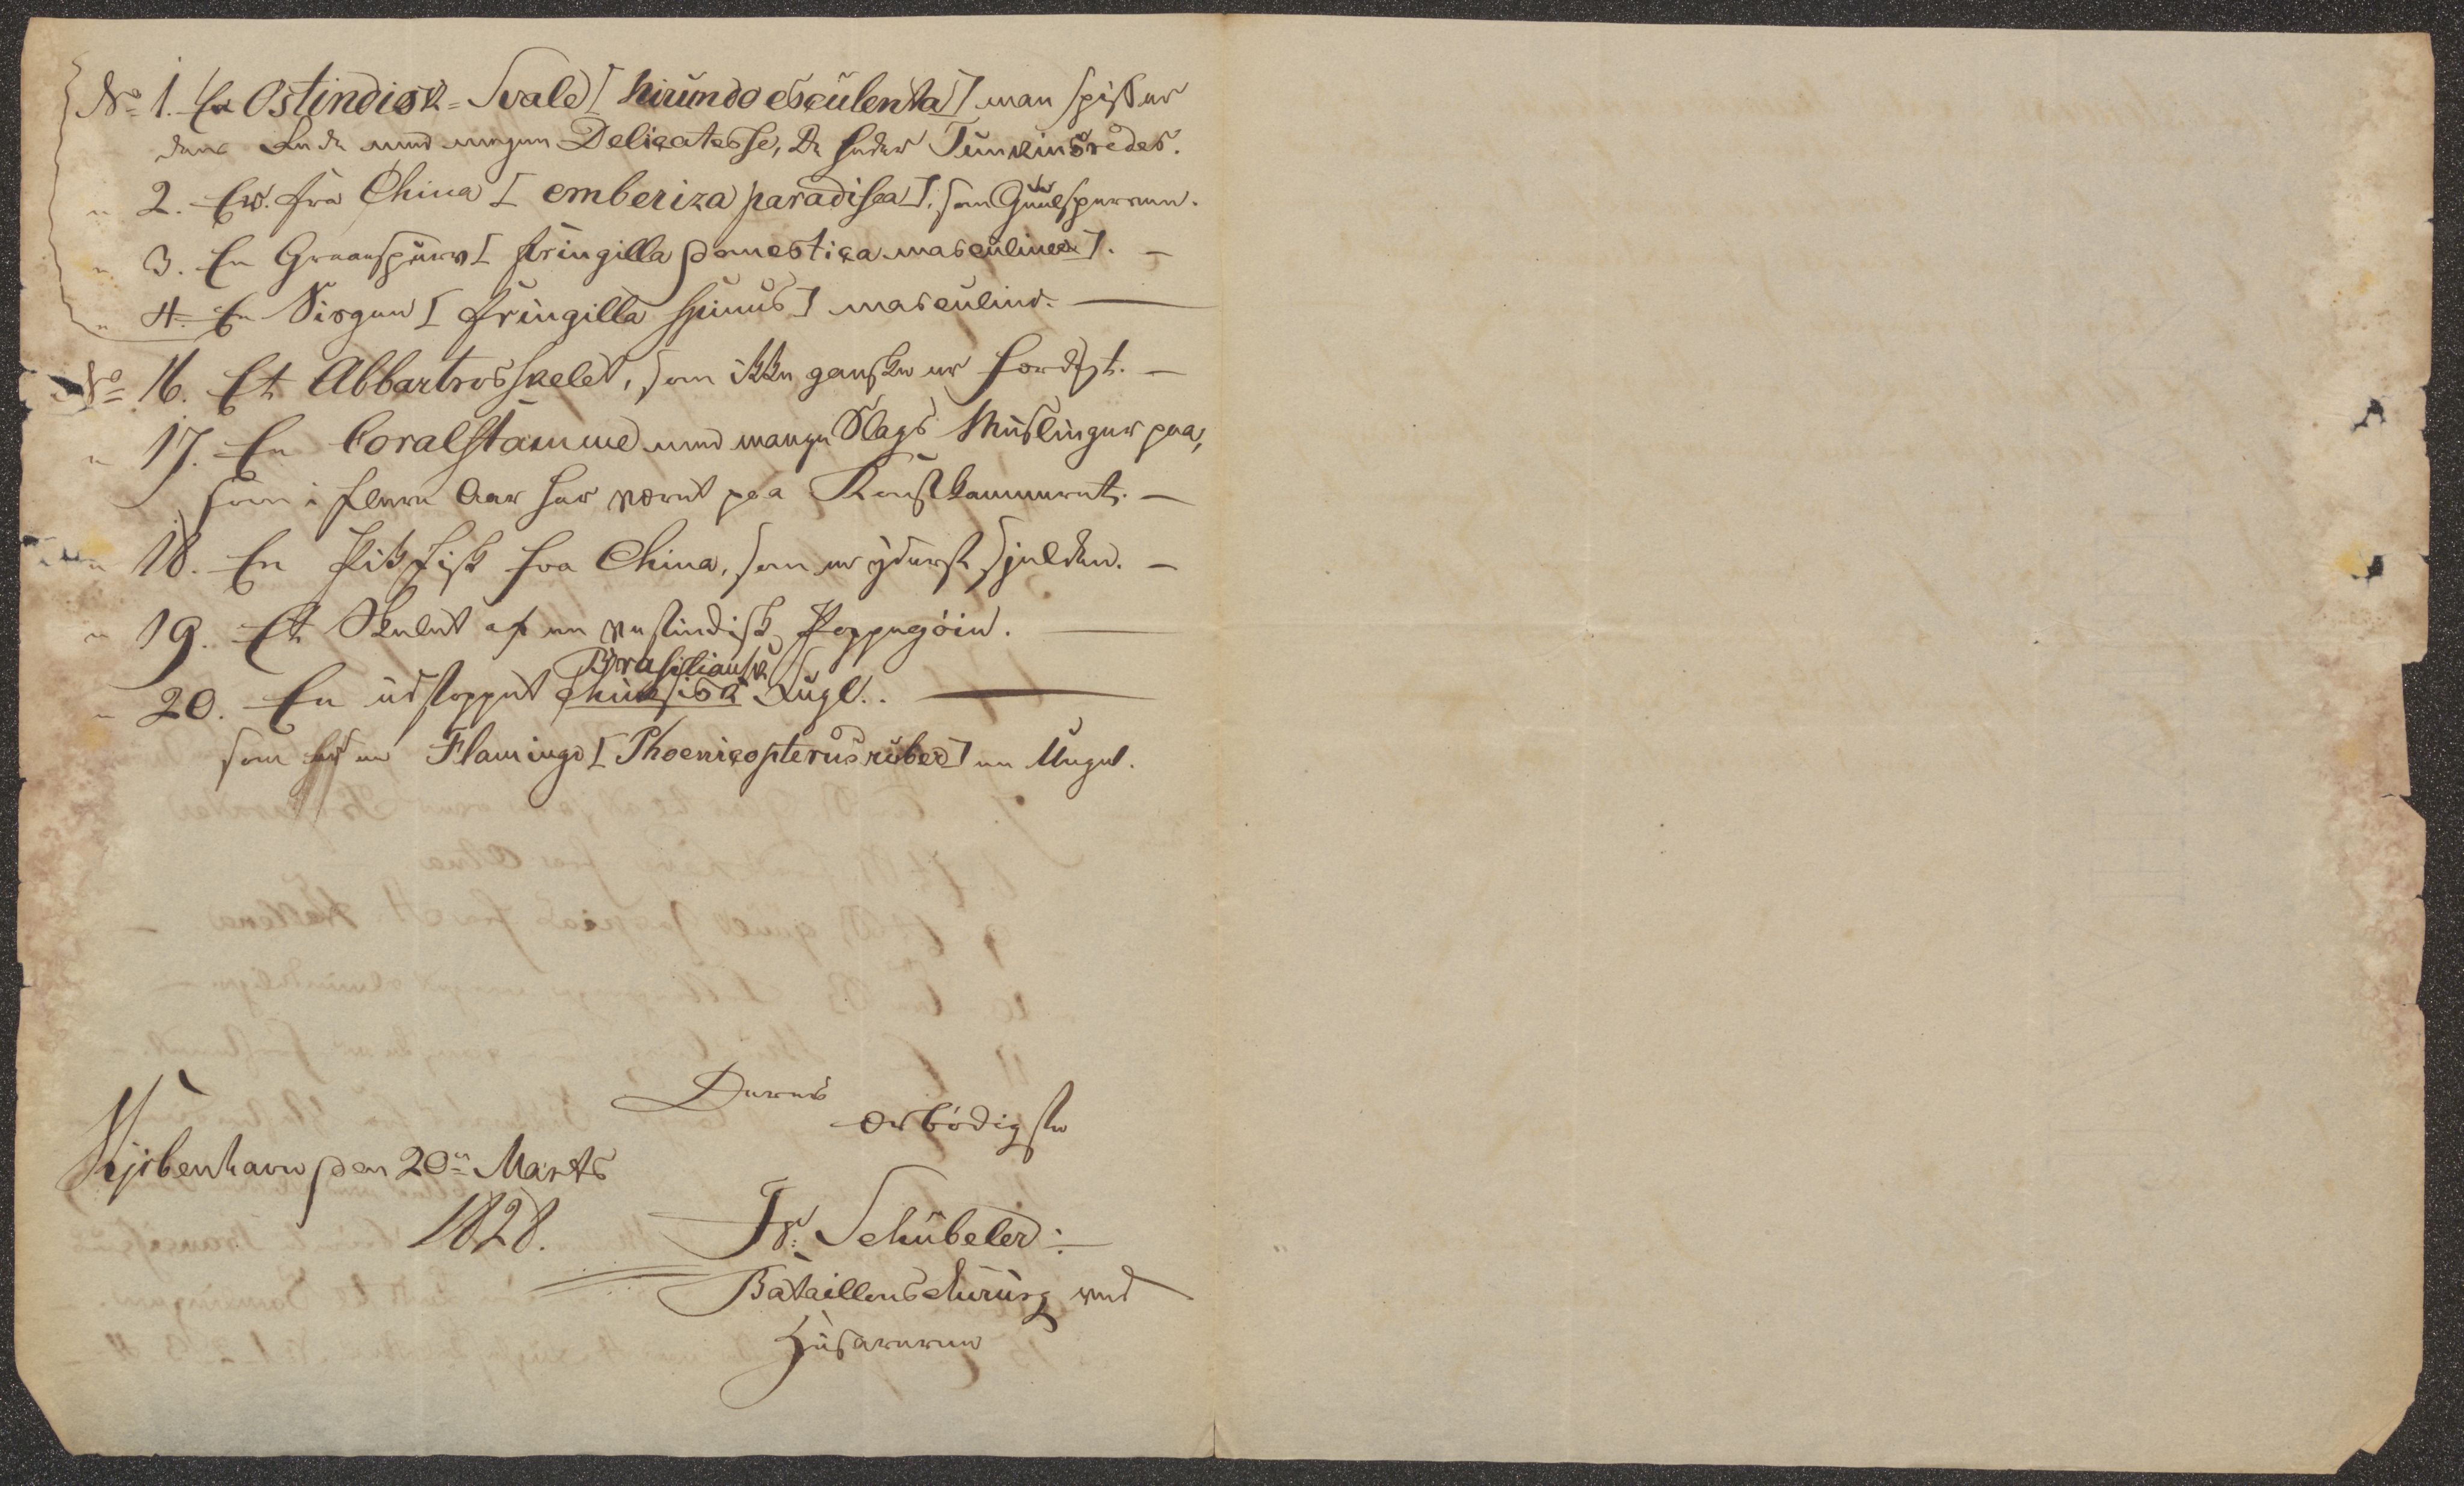 No 1. En Ostindisk-Svale [hirundo esculenta] man spiser
dens Rede med megen Delicatesse, de heder Tunkinsredes.
" 2. En fra China [emberiza paradisea], som Guulspurven.
" 3. En Graaspurv [fringilla domestica masculine]. —
" 4. En Sisgen [fringilla spinus] masculine. —
No 16. Et Abbartrosskelet, som ikke ganske er færdigt. —
" 17. En Coralstamme med mange Slags Muslinger paa,
som i flere Aar har været paa Kunstkammeret. —
" 18. En Fisk fra China, som er yderst sjelden. —
" 19. Et Skelet af en vestindisk Poppegöie. —
Brasiliansk
" 20. En udstoppet Chinesisk Fugl. —
som er en Flamingo [Phoenicopterus ruber] en Unge.
Deres
ærbödigste
Kjöbenhavn den 20n Marts
1828.
Fr: Schübeler
Bataillonschirurg ved
Husarerne